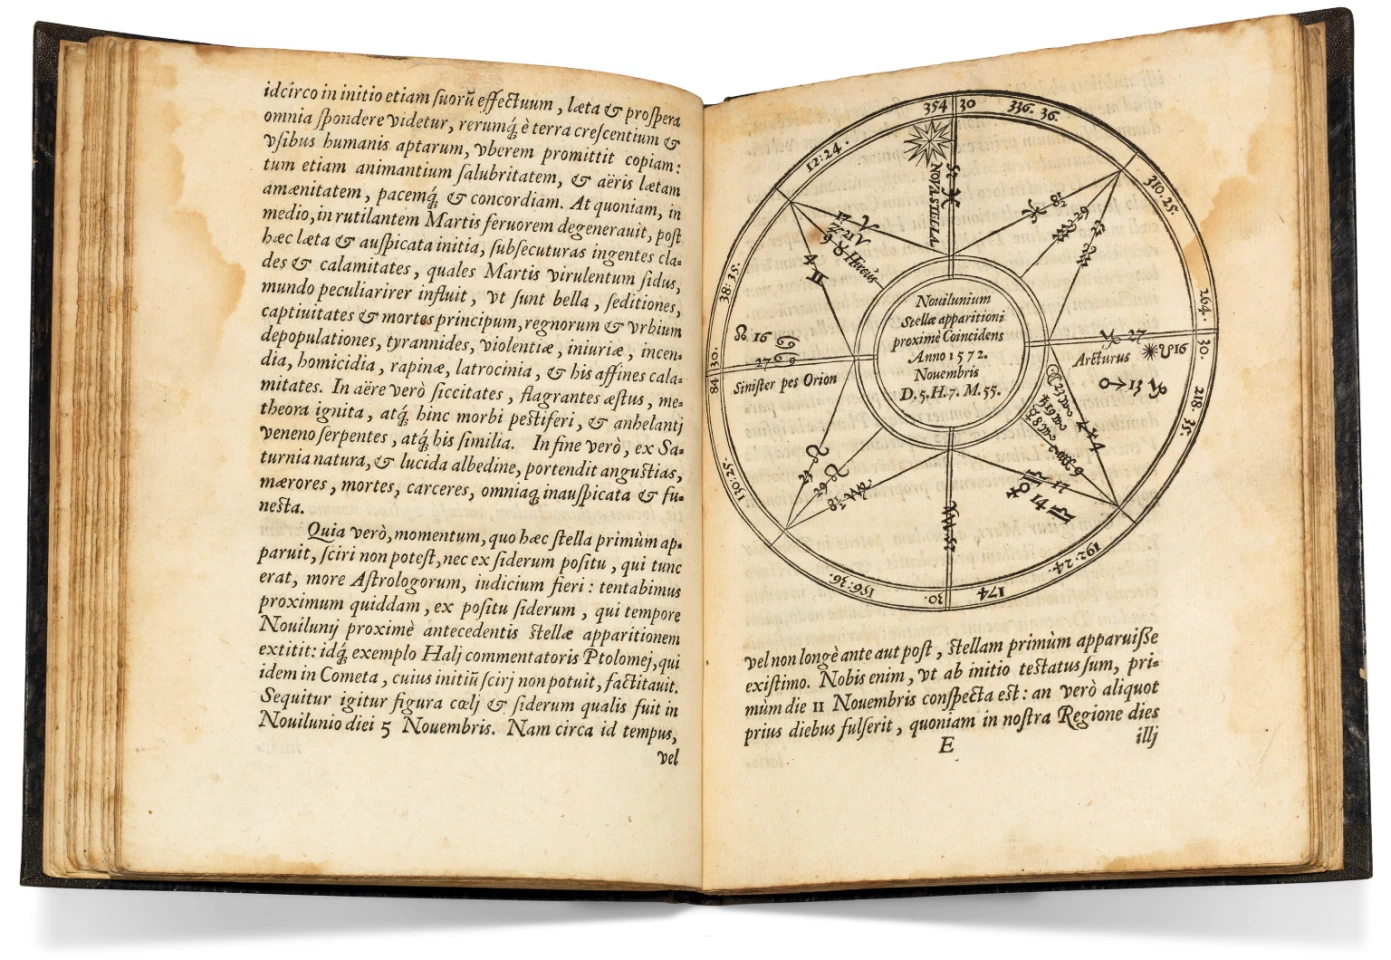 idcirco in initio etiam ſuorũ effectuum, læta & proſpera
omnia ſpondere videtur, rerumq́; è terra creſcentium &
vſibus humanis aptarum, vberem promittit copiam:
tum etiam animantium ſalubritatem, & aëris lætam
amænitatem, pacemq́; & concordiam. At quoniam, in
medio, in rutilantem Martis feruorem degenerauit, poſt
hæc læta & auſpicata initia, ſubſecuturas ingentes cla-
des & calamitates, quales Martis virulentum ſidus,
mundo peculiarirer influit, vt ſunt bella, ſeditiones,
captiuitates & mortes principum, regnorum & vrbium
depopulationes, tyrannides, violentiæ, iniuriæ, incen-
dia, homicidia, rapinæ, latrocinia, & his affines cala-
mitates. In aëre verò ſiccitates, flagrantes æſtus, me-
theora ignita, atq́; hinc morbi peſtiferi, & anhelantj
veneno ſerpentes, atq́; his ſimilia. In fine verò, ex Sa-
turnia natura, & lucida albedine, portendit anguſtias,
mærores, mortes, carceres, omniaq́; inauſpicata & fu-
neſta.
Quia verò, momentum, quo hæc ſtella primùm ap-
paruit, ſciri non poteſt, nec ex ſiderum poſitu, qui tunc
erat, more Aſtrologorum, iudicium fieri: tentabimus
proximum quiddam, ex poſitu ſiderum, qui tempore
Nouilunij proximè antecedentis ſtellæ apparitionem
extitit: idq́; exemplo Halj commentatoris Ptolomej, qui
idem in Cometa, cuius initiũ ſcirj non potuit, factitauit.
Sequitur igitur figura cœlj & ſiderum qualis fuit in
Nouilunio diei 5 Nouembris. Nam circa id tempus,
vel
354 30 336. 36.
12:24.
310:25.
NOVA STELLA
38:35.
264.
Hircus
Nouilunium
Stellæ apparitioni
proximè Coincidens
Anno 1572.
Nouembris
D. 5. H. 7. M. 55.
♌ 16
27 ♋
♑ 27
Arcturus
♑ 16
30.
84 30.
Siniſter pes Orion
♂ 13 ♑
218. 35.
130:25.
192:24.
156:36.
30. 174
vel non longè ante aut poſt, ſtellam primùm apparuiſſe
exiſtimo. Nobis enim, vt ab initio teſtatus ſum, pri-
mùm die 11 Nouembris conſpecta eſt: an verò aliquot
prius diebus fulſerit, quoniam in noſtra Regione dies
E
illj